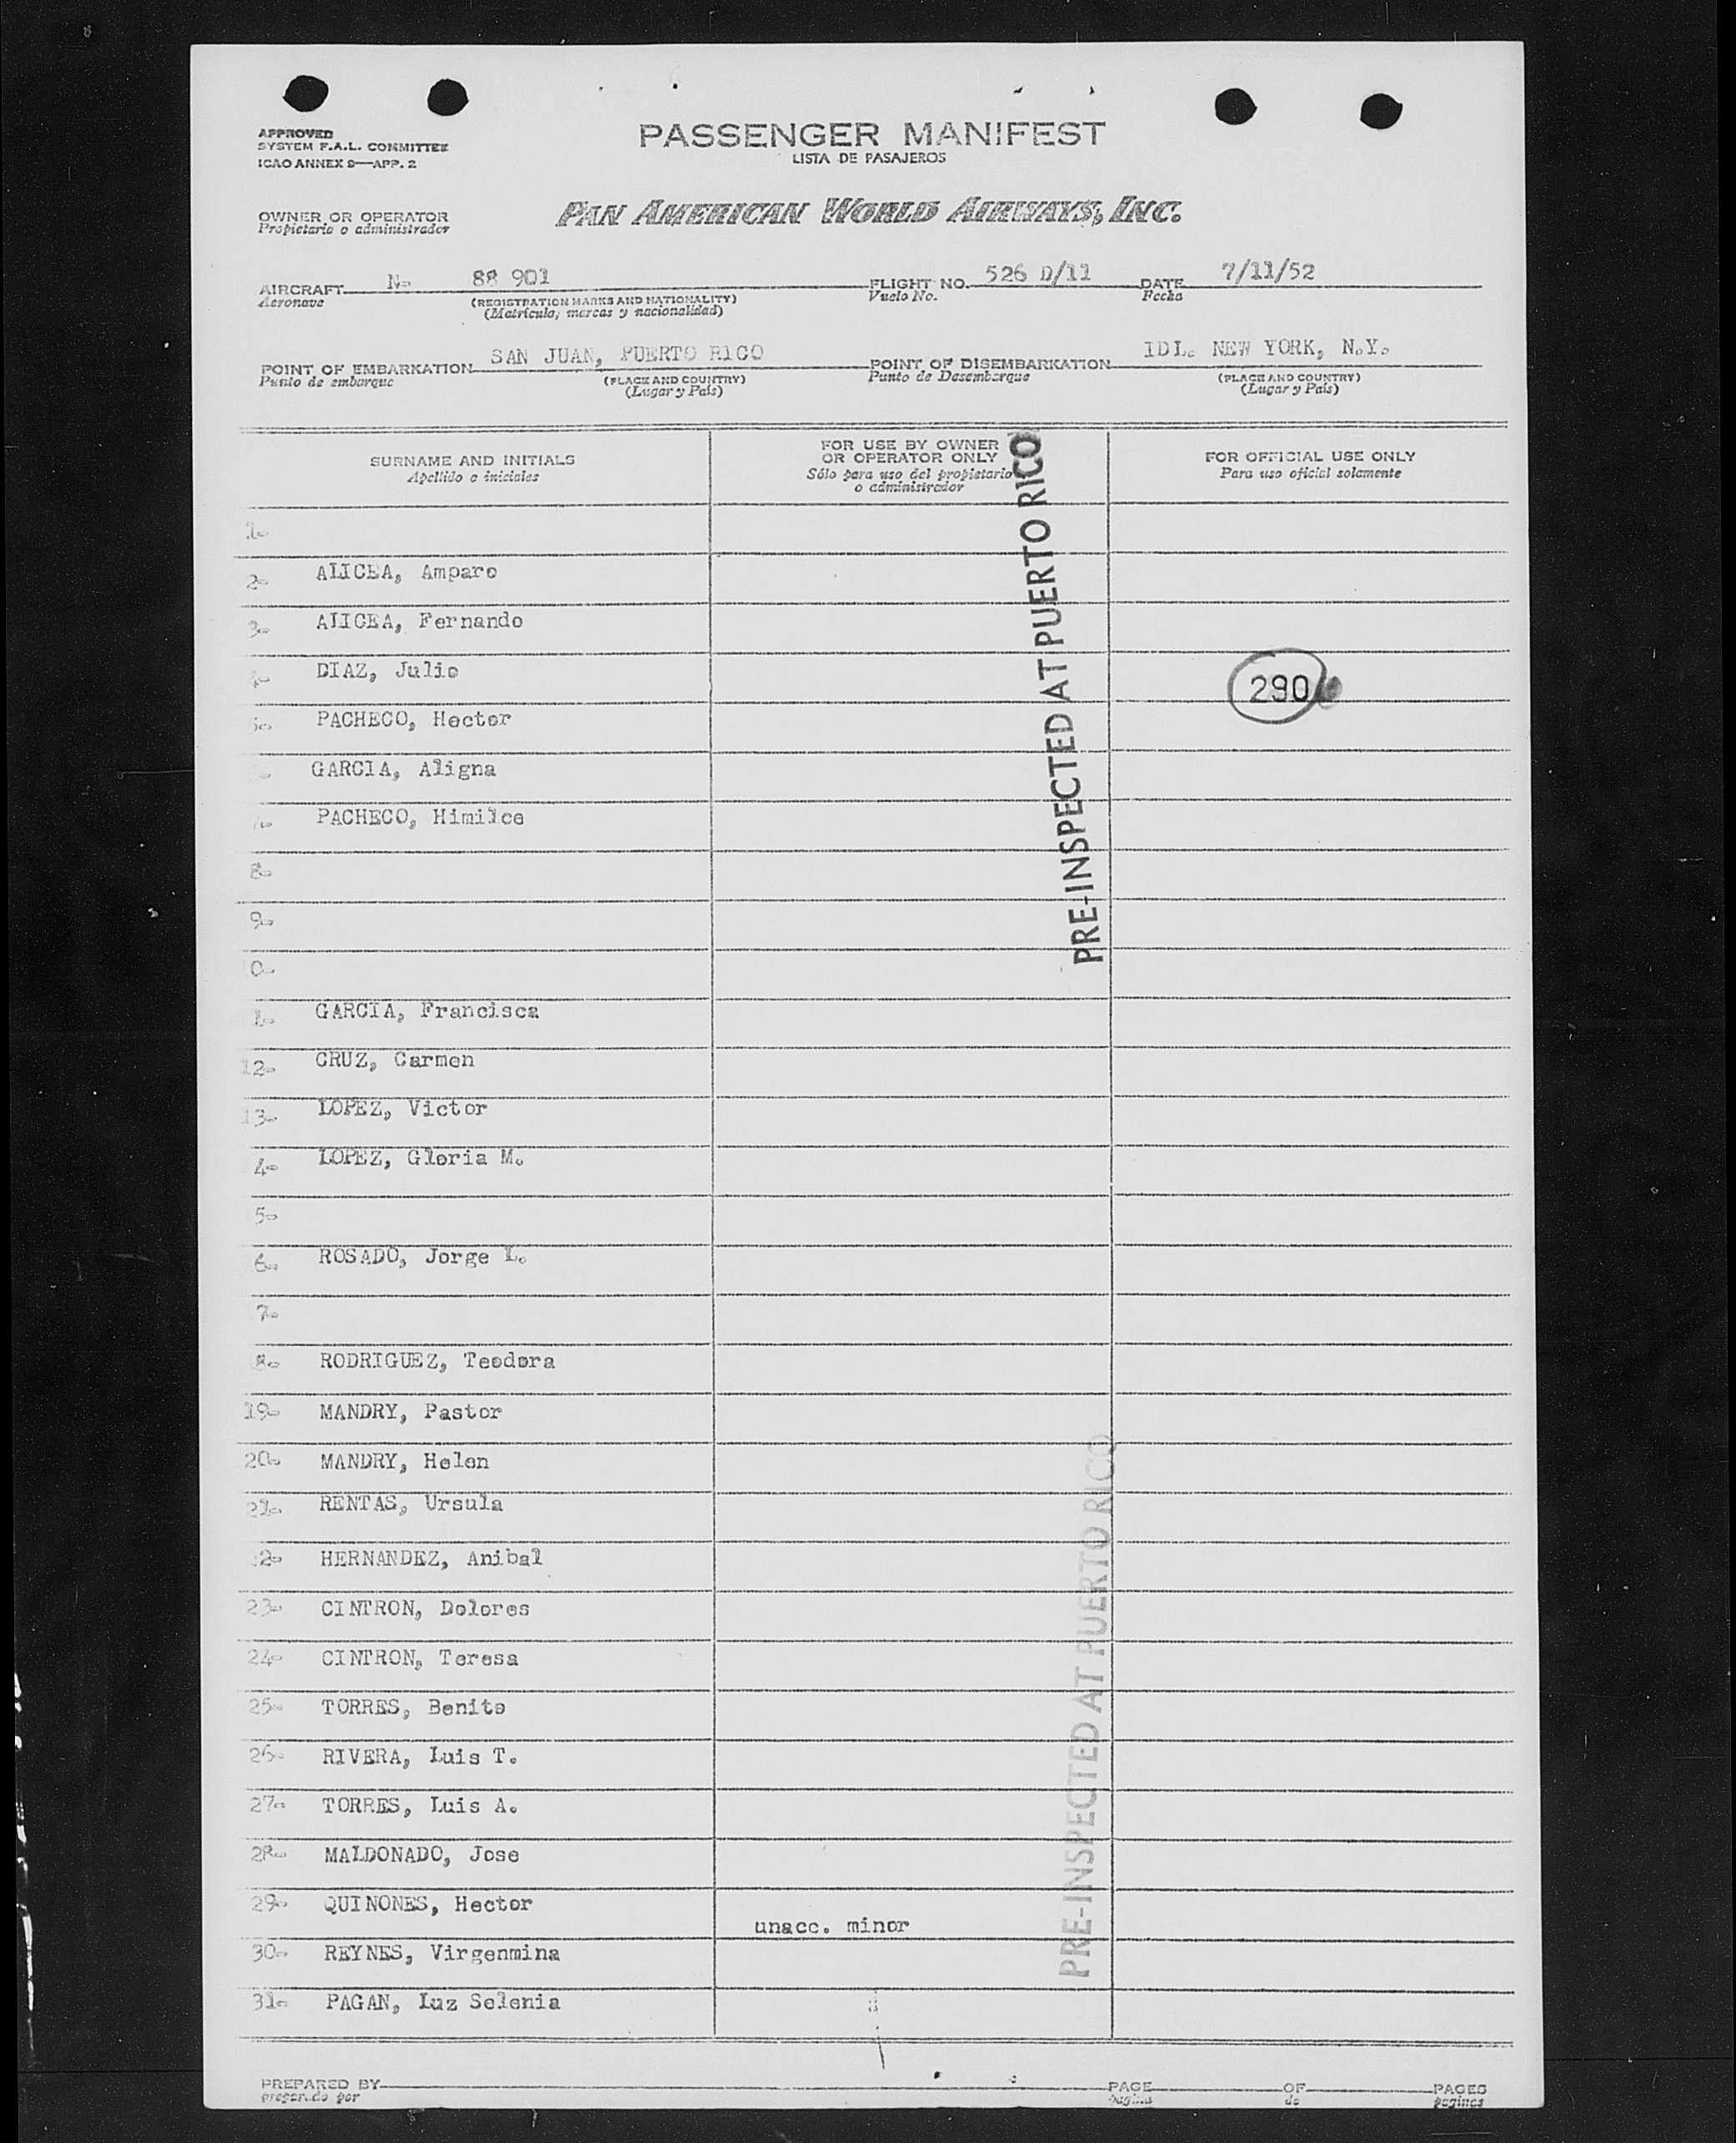 APPROVED
SYSTEM F.A.L. COMMITTEE
ICAO ANNEX 9—APP. 2
PASSENGER MANIFEST
LISTA DE PASAJEROS
OWNER OR OPERATOR
Propietario o administrador
PAN AMERICAN WORLD AIRWAYS, INC.
AIRCRAFT N- 88 901 FLIGHT NO. 526 D/11 DATE 7/11/52
Aeronave (REGISTRATION MARKS AND NATIONALITY) Vuelo No. Fecha
(Matrícula, marcas y nacionalidad)
POINT OF EMBARKATION SAN JUAN, PUERTO RICO POINT OF DISEMBARKATION IDL. NEW YORK, N.Y.
Punto de embarque (PLACE AND COUNTRY) Punto de Desembarque (PLACE AND COUNTRY)
(Lugar y País) (Lugar y País)
SURNAME AND INITIALS
Apellido e iniciales
FOR USE BY OWNER
OR OPERATOR ONLY
Sólo para uso del propietario
o administrador
FOR OFFICIAL USE ONLY
Para uso oficial solamente
PRE-INSPECTED AT PUERTO RICO
1-
2- ALICEA, Amparo
3- ALICEA, Fernando
4- DIAZ, Julio
290
5- PACHECO, Hector
GARCIA, Aligna
7- PACHECO, Himilce
8-
9-
0-
1- GARCIA, Francisca
12- CRUZ, Carmen
13- LOPEZ, Victor
4- LOPEZ, Gloria M.
5-
6- ROSADO, Jorge L.
7-
8- RODRIGUEZ, Teodora
19- MANDRY, Pastor
20- MANDRY, Helen
21- RENTAS, Ursula
22- HERNANDEZ, Anibal
23- CINTRON, Dolores
24- CINTRON, Teresa
25- TORRES, Benito
26- RIVERA, Luis T.
27- TORRES, Luis A.
28- MALDONADO, Jose
29- QUINONES, Hector
unacc. minor
30- REYNES, Virgenmina
31- PAGAN, Luz Selenia "
PRE-INSPECTED AT PUERTO RICO
PREPARED BY PAGE OF PAGES
preparado por página de páginas